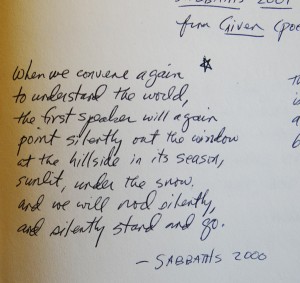 SABBATHS 2001
from Given (poe
When we convene again
to understand the world,
the first speaker will again
point silently out the window
at the hillside in its season,
sunlit, under the snow,
and we will nod silently,
and silently stand and go.
— SABBATHS 2000